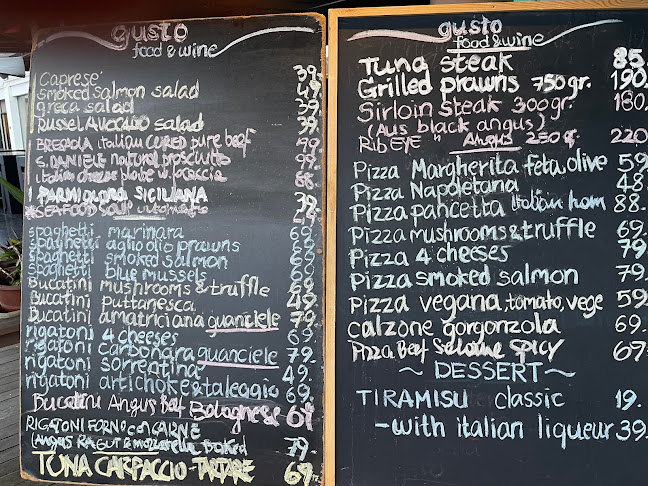 gusto
food & wine
Caprese 39.
smoked salmon salad 49.
greca salad 39.
Russel Avocado salad 39.
BRESAOLA italian CURED pure beef 99
S. DANIELE natural prosciutto 99.
italian cheese plate w. focaccia 88
1 PARMIGIANA SICILIANA 39.
SEAFOOD SOUP w tomato
spaghetti marinara 69.
spaghetti aglio olio prawns 69.
spaghetti smoked salmon 69.
spaghetti blue mussels 69
Bucatini mushrooms & truffle 69.
Bucatini puttanesca 49.
Bucatini amatriciana guanciele 79
rigatoni 4 cheeses 69.
rigatoni carbonara guanciele 79.
rigatoni sorrentina 49.
rigatoni artichoke & taleggio 69.
Bucatini Angus Beef Bolognese 67
RIGATONI FORNO con CARNE
(Angus RAGUT & mozzarella) Baked 79.
TUNA CARPACCIO-TARTARE 69.
gusto
food & wine
Tuna steak 85.
Grilled prawns 750gr. 190.
Sirloin steak 300gr. 180.
(Aus black angus)
RibEYE " Angus 250g. 220
Pizza Margherita feta, olive 59
Pizza Napoletana 48.
Pizza pancetta italian ham 88.
Pizza mushrooms & truffle 69.
Pizza 4 cheeses 79
Pizza smoked salmon 79.
Pizza vegana, tomato, vege 59
calzone gorgonzola 69.
Pizza Beef Salame SPICY 67
~ DESSERT ~
TIRAMISU classic 19.
-with italian liqueur 39.